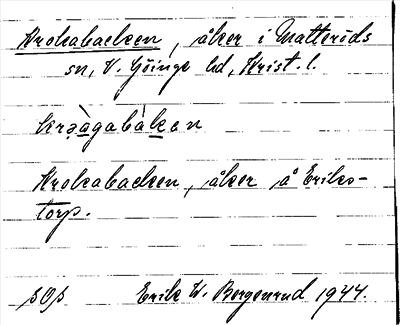 Krokabacken, åker i Matteröds
sn, V. Göinge hd, Krist. l.
krǫ̀agabàkan
Krokabacken, åker å Eriks-
torp.
sOs Erik W. Bergenrud 1944.